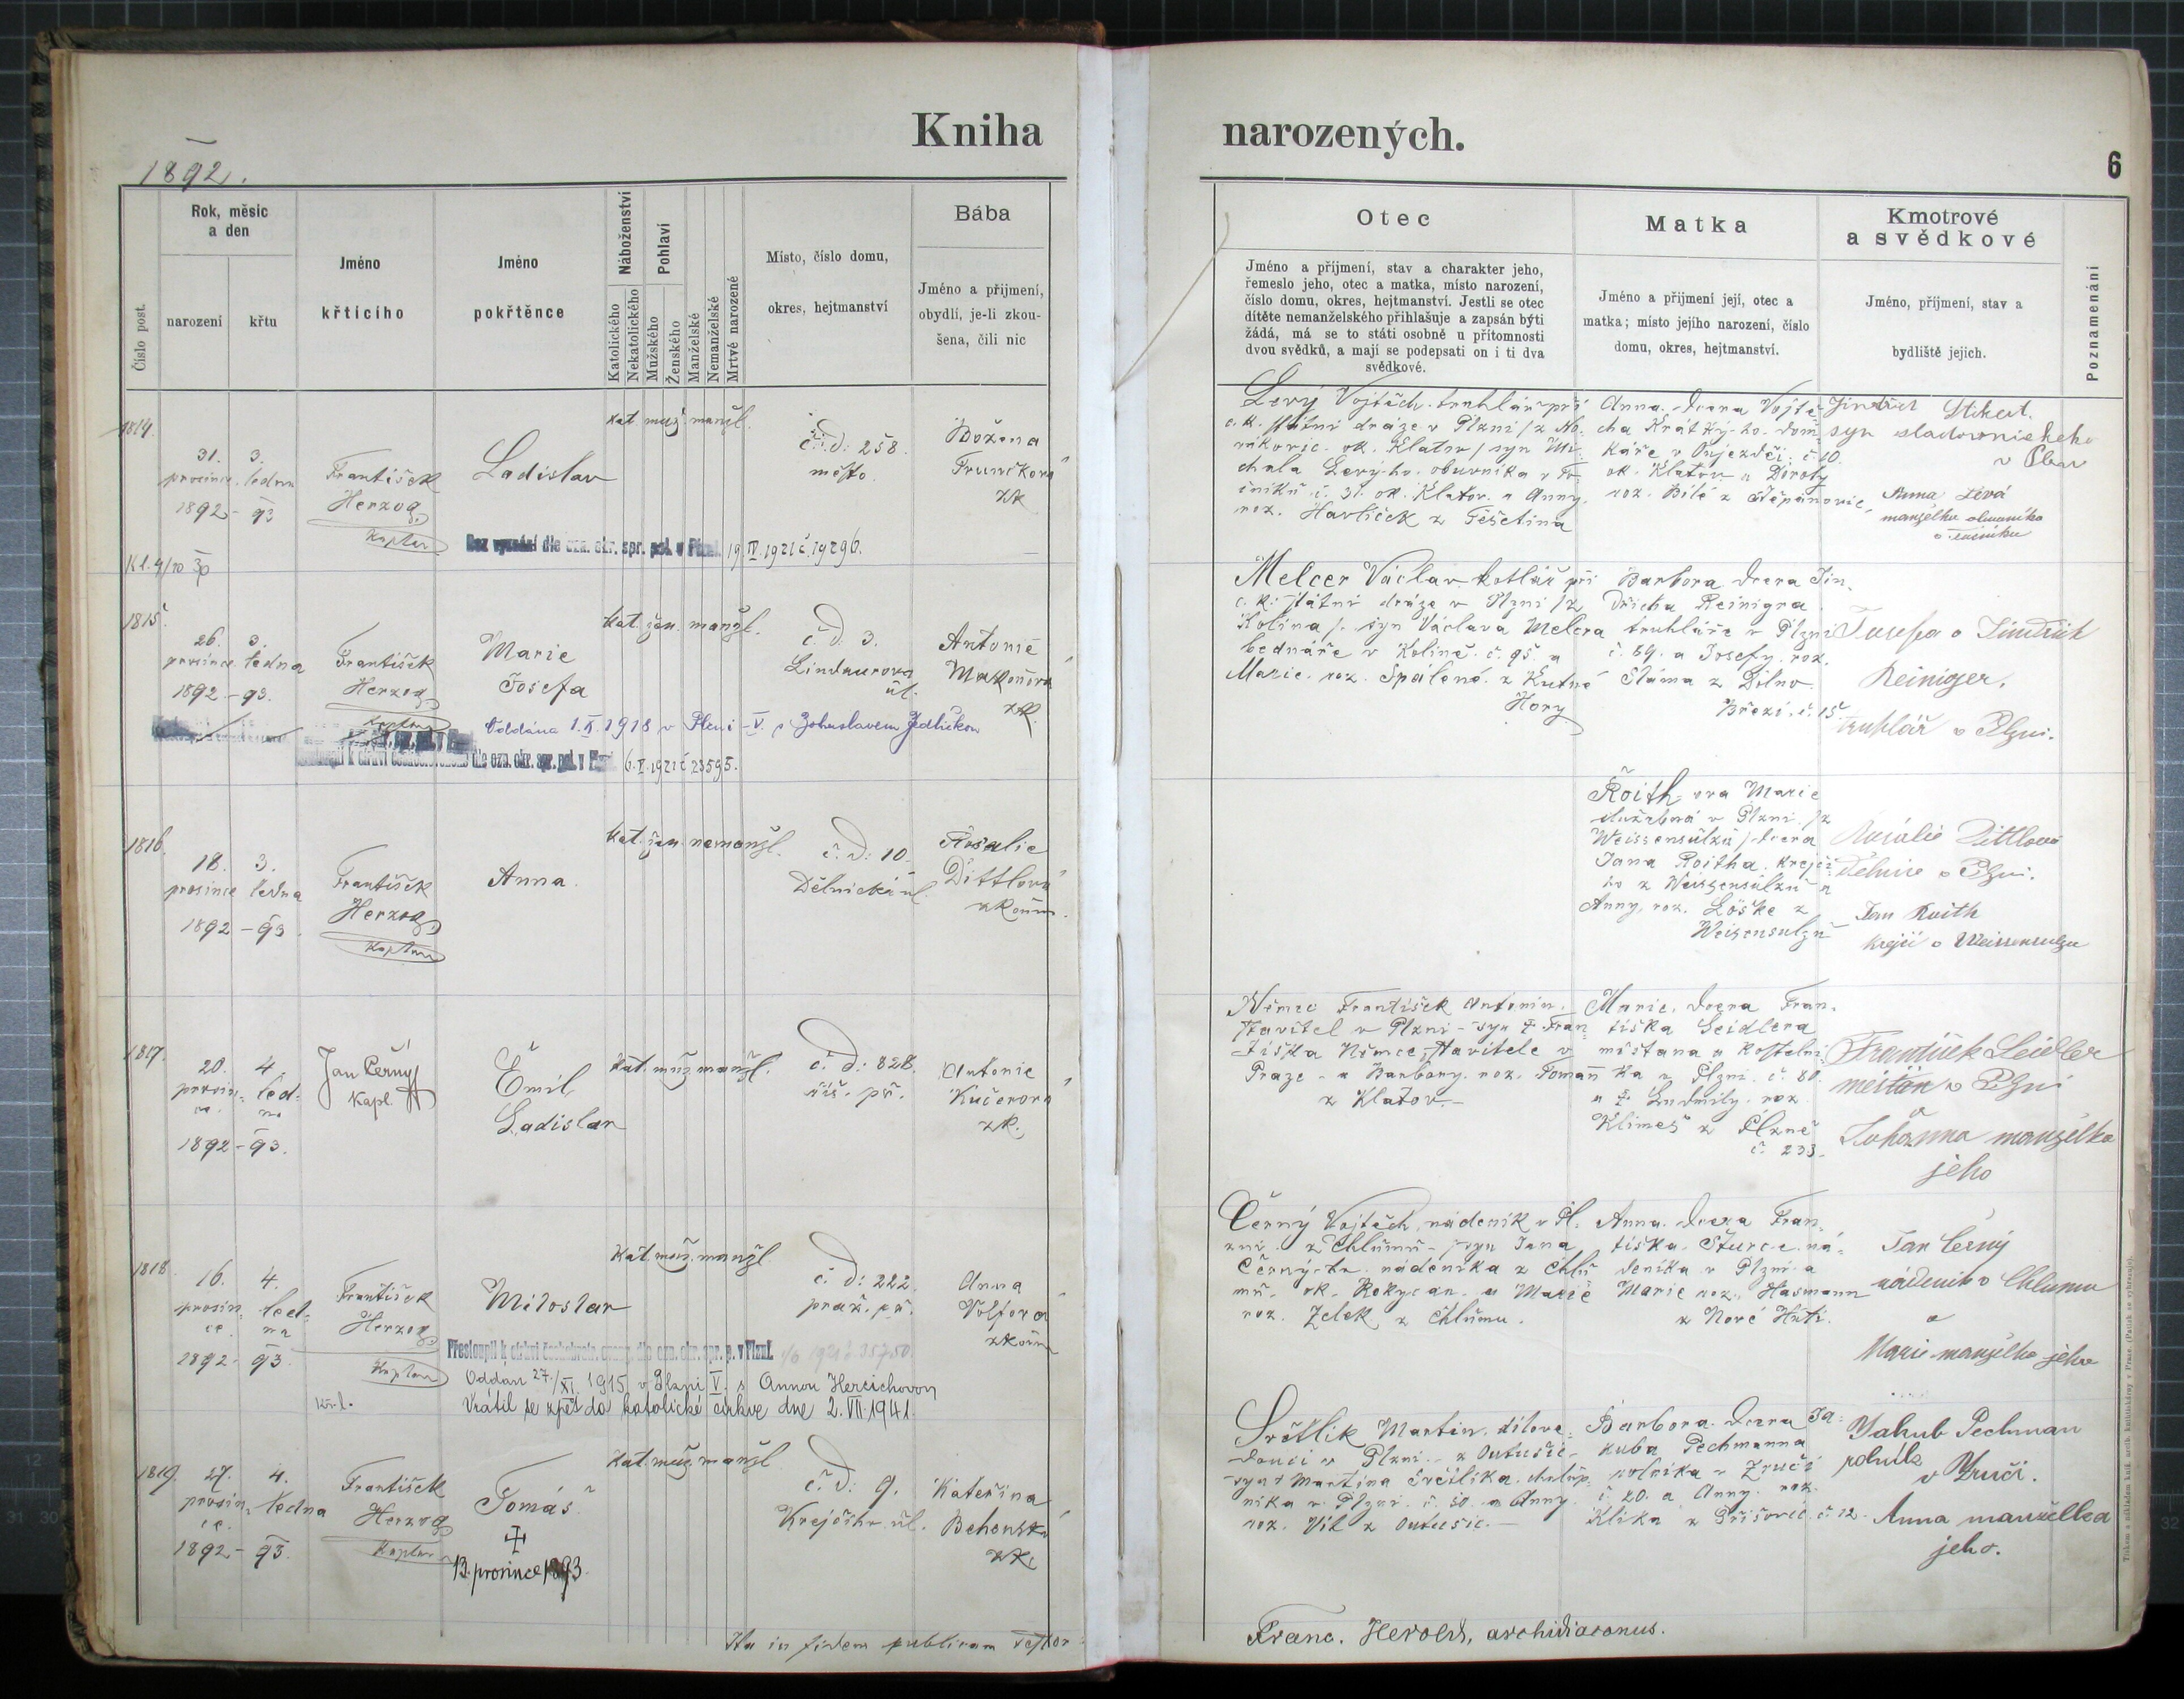 Kniha narozených.
1892.
6
Číslo post.
Rok, měsíc
a den
narození
křtu
Jméno
křticího
Jméno
pokřtěnce
Náboženství
Katolického
Nekatolického
Pohlaví
Mužského
Ženského
Manželské
Nemanželské
Mrtvě narozené
Místo, číslo domu,
okres, hejtmanství
Bába
Jméno a přijmení,
obydlí, je-li zkou-
šena, čili nic
Otec
Jméno a příjmení, stav a charakter jeho,
řemeslo jeho, otec a matka, místo narození,
číslo domu, okres, hejtmanství. Jestli se otec
dítěte nemanželského přihlašuje a zapsán býti
žádá, má se to státi osobně u přítomnosti
dvou svědků, a mají se podepsati on i ti dva
svědkové.
Matka
Jméno a přijmení její, otec a
matka; místo jejího narození, číslo
domu, okres, hejtmanství.
Kmotrové
a svědkové
Jméno, příjmení, stav a
bydliště jejich.
Poznamenání
1814.
31. 3.
prosince ledna
1892 - 93
František
Herzog
Kaplan
Ladislav
kat. muž. manžl.
č. d: 258.
město.
Božena
zk
Bez vyznání dle ozn. okr. spr. pol. v Plzni. 19. IV. 1921 č. 19296.
Levý Vojtěch truhlář při
c. k. státní dráze v Plzni
ok. Klatov / syn Mi-
chala Levý-ho obuvníka v
č. 31. ok. Klatov. a Anny,
roz. Havlíček z Těšetina
Anna dcera Vojtě-
cha Krátký-ho dom-
káře v Onjezdci č. 10.
ok. Klatov a Doroty
roz. Bílé z Štěpánovic.
Jindřich
syn sladovnického
Anna Levá
manželka obuvníka
1815
26. 3.
prosince ledna
1892. - 93.
František
Herzog
Kaplan
Marie
Josefa
kat. žen. manžl.
č. d. 3.
Lindaurova
ul.
Antonie
zk.
Oddána 1. X. 1918 v Plzni - V. s Bohuslavem Jedličkou
dle ozn. okr. spr. pol. v Plzni 6. V. 1921 č 23595.
Melcer Václav kotlář při
c. k. státní dráze v Plzni / z
Kolína / syn Václava Melcra
bednáře v Kolíně. č. 95. a
Marie. roz. Spálené. z Kutné
Hory
Barbora dcera Jin-
dřicha Reinigra
truhláře v Plzni
č. 69. a Josefy. roz.
Sláma z Dolno
Březí. č. 15
Josefa a Jindřich
Reiniger.
truhlář v Plzni.
1816.
18. 3.
prosince ledna
1892 - 93
František
Herzog
Kaplan
Anna.
kat. žen. nemanžl.
č. d: 10.
Dělnická ul.
Rosalie
Dittlová
zkouš.
Roith-ova Marie
služebná v Plzni / z
Weissensulzu / dcera
Jana Roitha krejčí-
ho z Weissensulzu a
Anny, roz. Löske z
Weisensulzu
Rosálie Dittlová
v Plzni.
Jan Roith
krejčí v Weissensulzu
1817.
20. 4.
prosin- led-
ce. na
1892 - 93.
Jan Černý
kapl.
Emil
Ladislav
kat. muž. manžl.
č. d: 828.
říš. př.
Antonie
Kučerová
zk.
Němec František Antonín
stavitel v Plzni - syn † Fran-
tiška Němce, stavitele v
Praze - a Barbory. roz. Toman
z Klatov. -
Marie, dcera Fran-
tiška Seidlera
měšťana a kostelní-
ka v Plzni. č. 80.
a † Ludmily. roz.
Klimeš z Plzně
č. 233.
František Seidler
měšťan v Plzni
Johanna manželka
jeho
1818.
16. 4.
prosin- led-
ce. na
1892 - 93
František
Herzog
Kaplan
Miloslav
kat. muž. manžl.
č. d: 222.
praž. př.
Anna
Volfová
zkouš
Přestoupil k církvi českoslov. dle ozn. okr. spr. p. v Plzni. 1921 č 35750.
Oddán 27./XI. 1915 v Plzni V. s Annou Hercichovou
Vrátil se zpět do katolické církve dne 2. VII. 1941.
Černý Vojtěch, nádeník v Pl-
zni. z Chlumu - syn Jana
Černý-ho nádeníka z Chlu-
mu. ok. Rokycan. a Marie
roz. Zelek z Chlumu.
Anna. dcera Fran-
tiška. Šturce ná-
deníka v Plzni a
Marie roz. Hasmann
z Nové Huti.
Jan Černý
nádeník v Chlumu
a
Marie manželka jeho
1819.
27. 4.
prosin- ledna
ce.
1892 - 93.
František
Herzog
Kaplan
Tomáš
13. prosince 1893.
kat. muž. manžl.
č. d: 9.
Krejčího ul.
Kateřina
Behenská
zk.
Světlík Martin, dílove-
doucí v Plzni - z Outušic -
syn † Martina Světlíka. chalup-
níka v Plzni. č. 50. a Anny.
roz. Vík z Outušic. -
Barbora dcera Ja-
kuba Pechmanna
rolníka v Zruči
č. 20. a Anny. roz.
Klika z Příšovic. č 12.
Jakub Pechman
rolník
v Zruči.
Anna manželka
jeho.
Ita in fidem publicam testor:
Franc. Herold, archidiaconus.